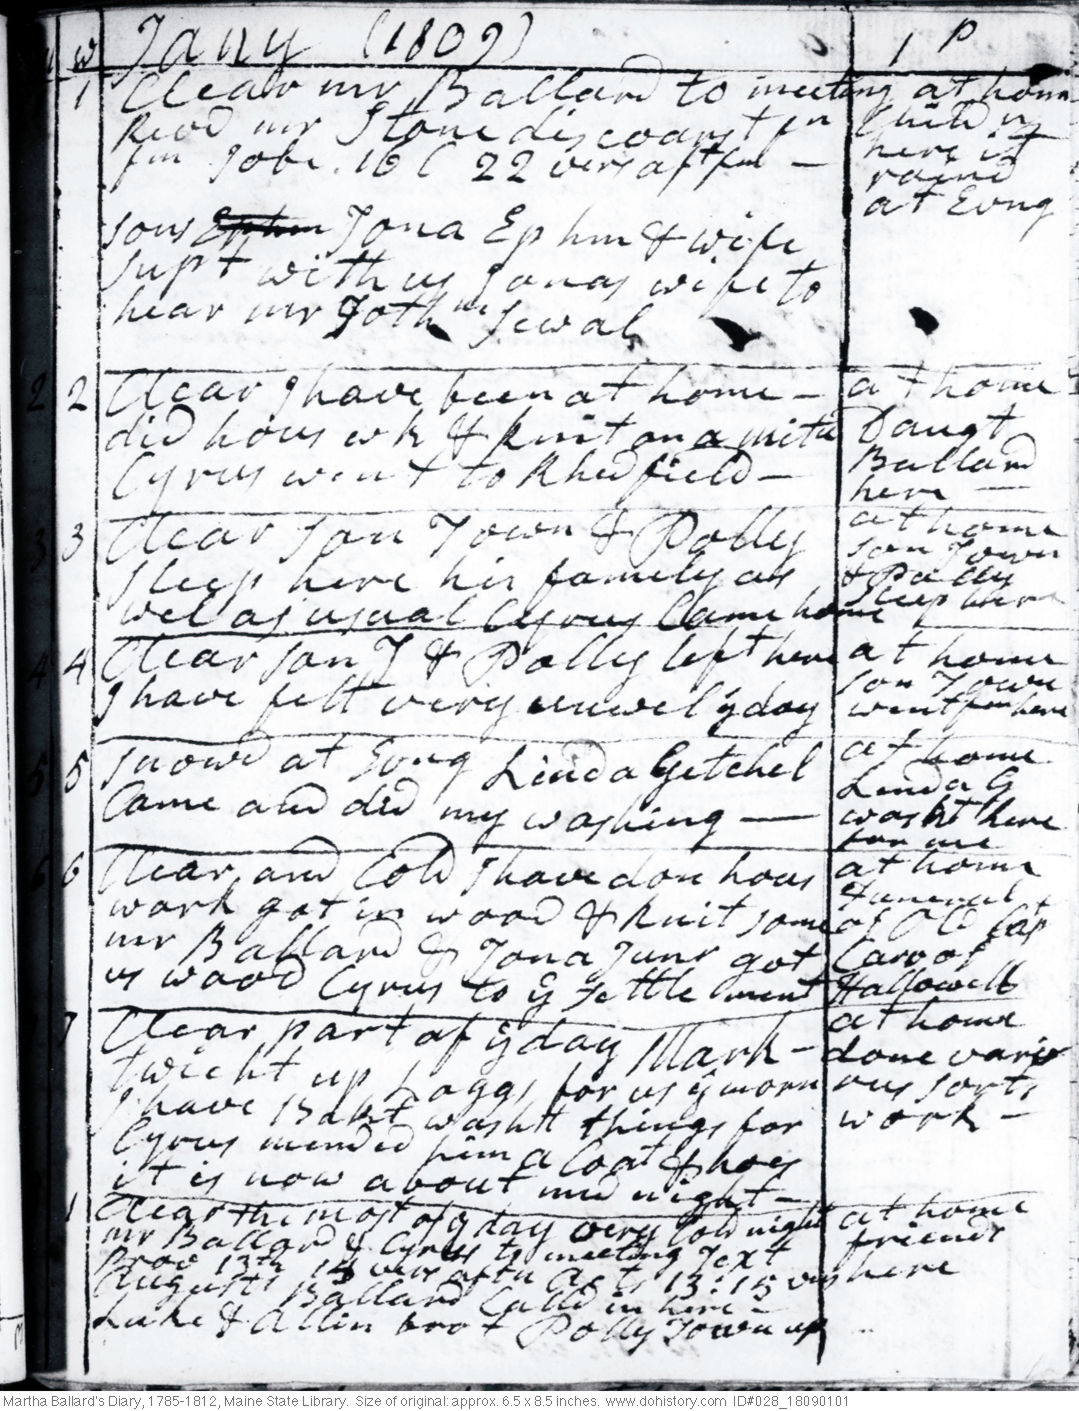 w Jany (1809) 1 P
1 Clear mr Ballard to meeting at home
Revd mr Stone discoarst fm Child n
fm Jobe. 16 C 22 vers aftfm — here it
raind
at Evng
sons Ephm Jona Ephm & wife
supt with us Jonas wife to
hear mr Joth m Sewal
2 2 Clear I have been at home — at home
did hous wk & knit on a mitn Daugt
Cyrus went to Rhedfield — Ballard
here —
3 3 Clear son Town & Polly at home
sleep here his family as son Town
wel as usual Cyrus Came home & Polly
sleep here
4 4 Clear son T & Polly left here at home
I have felt very unwel ÿ day son Town
went fm here
5 5 snowd at Evng Linda Getchel at home
Came and did my washing — Linda G
washt here
for me
6 6 Clear and Cold I have don hous at home
work got in wood & knit some Funeral
mr Ballard & Jona Junr got of Old Cap
us wood Cyrus to ÿ settlement Carr of
Hallowell
7 Clear part of ÿ day Mark — at home
twicht up Loggs for us ÿ morn done vari
I have Bakt washt things for ous sorts
Cyrus mended him a Coat & hoes work —
it is now about mid night —
1 Clear the most of ÿ day very Cold night at home
mr Ballard & Cyrus to meeting Text friends
Prov 13th 15 vers aftn Acts 13:15 vrs here
Augusts Ballard Calld in here —
Luke & Allin brot Polly Town up
Martha Ballard's Diary, 1785-1812, Maine State Library. Size of original: approx. 6.5 x 8.5 inches. www.dohistory.com ID#028_18090101